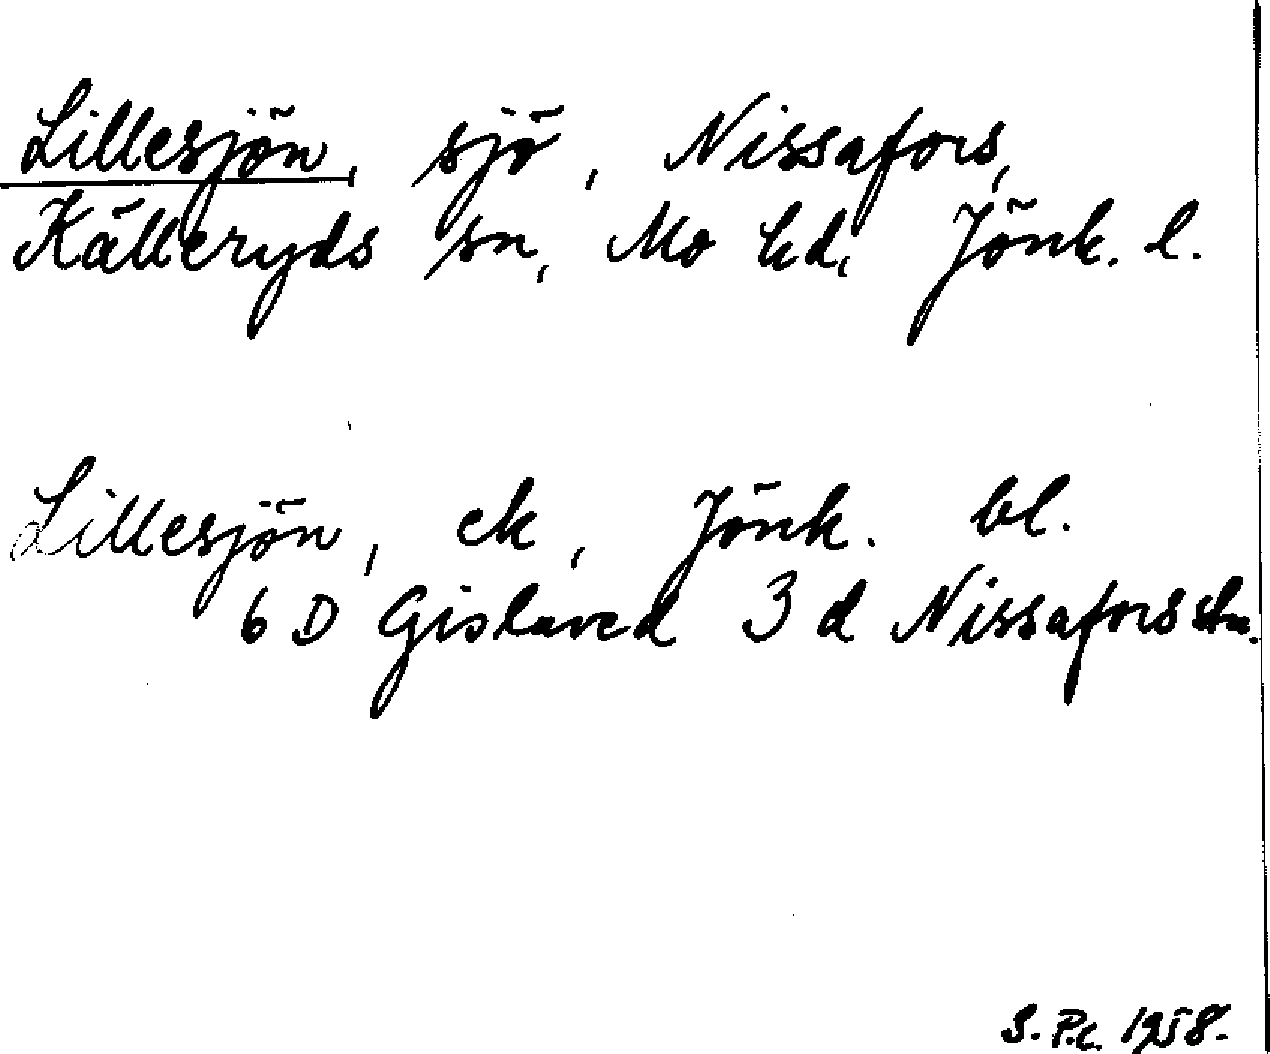 Lillesjön, sjö, Nissafors,
Källeryds sn, Mo hd, Jönk. l.
Lillesjön, ek, Jönk. bl.
6 D Gislaved 3 d Nissafors stn.
S. P.c. 1958.